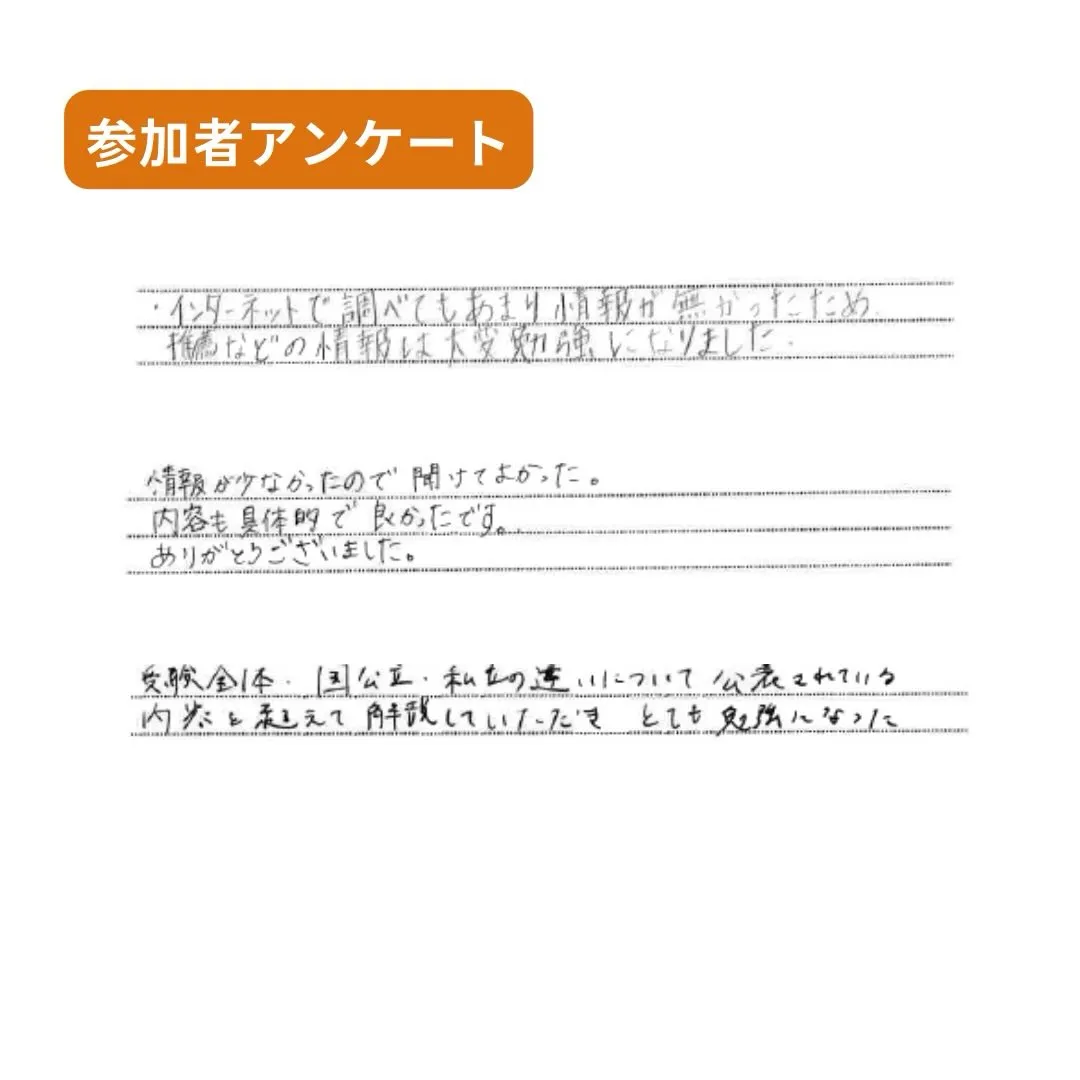 参加者アンケート
・インターネットで調べてもあまり情報が無かったため
推薦などの情報は大変勉強になりました.
情報が少なかったので 聞けてよかった。
内容も具体的で 良かったです。
ありがとうございました。
受験全体・国公立・私立の違いについて 公表されている
内容を超えて解説していただき とても勉強になった